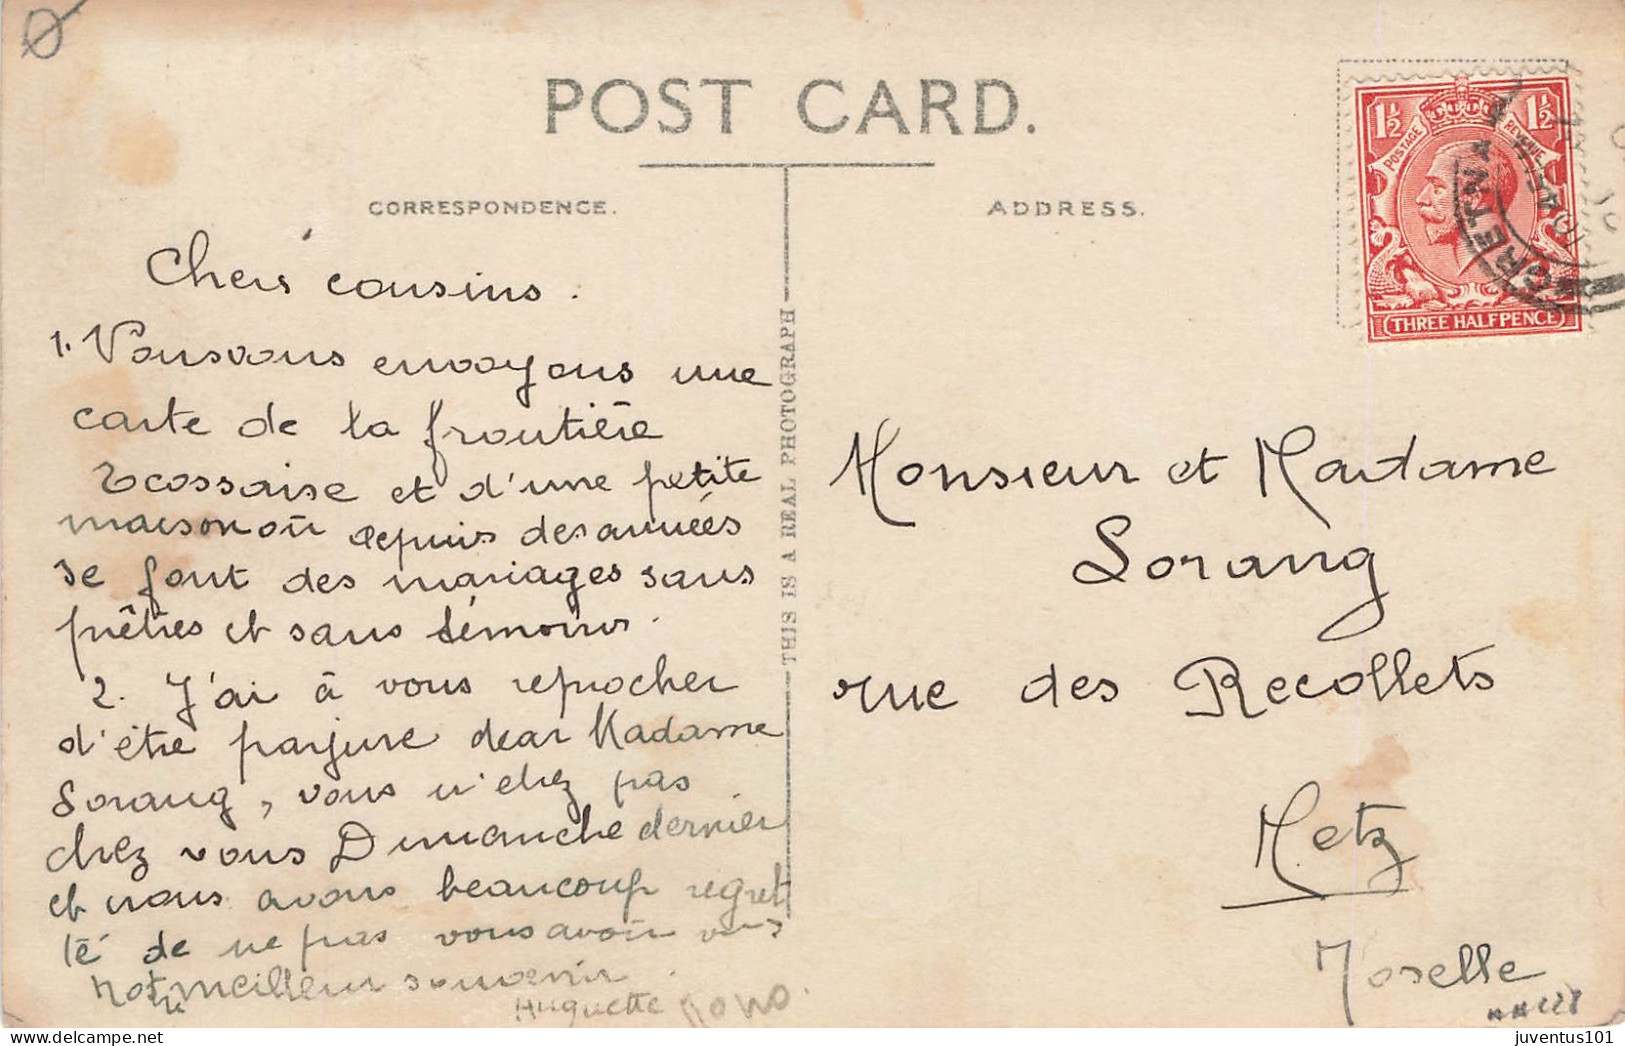 POST CARD.
CORRESPONDENCE.
ADDRESS.
1½ 1½
POSTAGE REVENUE
THREE HALFPENCE
GRETNA
THIS IS A REAL PHOTOGRAPH
Chers cousins.
1. Vous vous envoyons une
carte de la frontière
Ecossaise et d'une petite
maison où depuis des années
se font des mariages sans
prêtres et sans témoins.
2. J'ai à vous reprocher
d'être parjure dear Madame
Sorang, vous n'étiez pas
chez vous Dimanche dernier
et nous avons beaucoup regret
té de ne pas vous avoir vus
Notre meilleur souvenir.
Huguette
Monsieur et Madame
Sorang
rue des Recollets
Metz
Moselle
juventus101